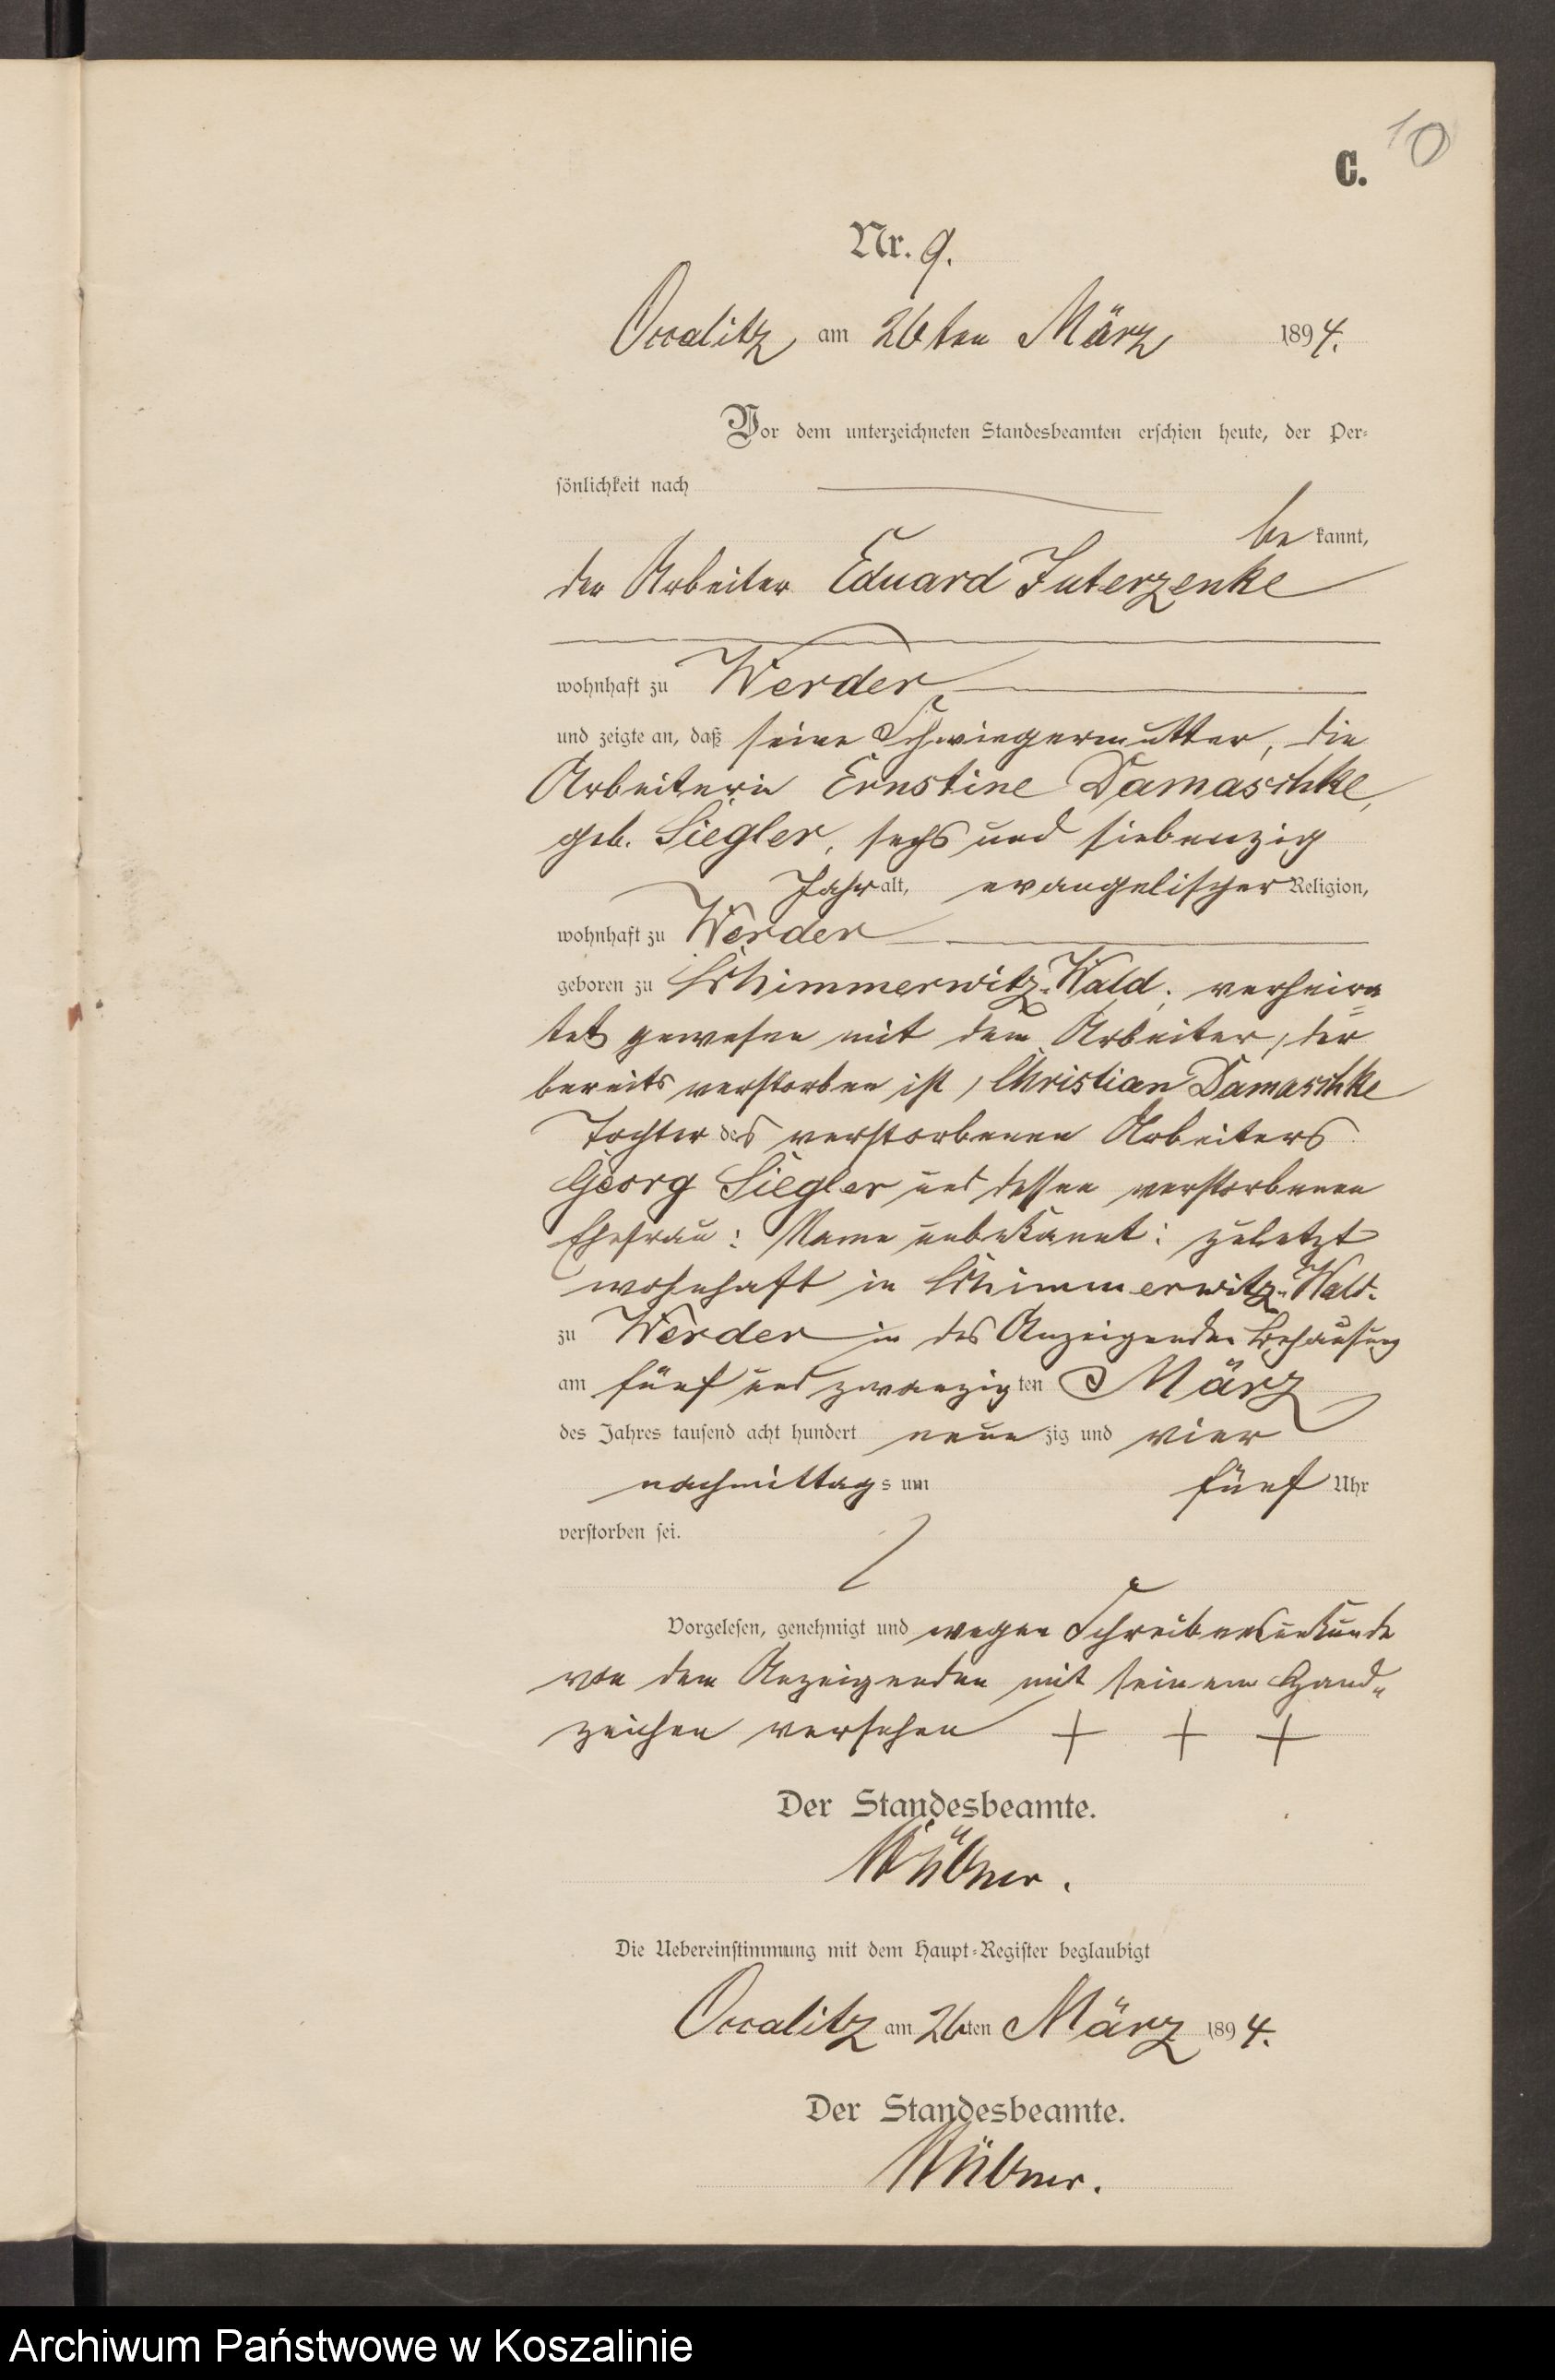 10
C.
Nr. 9.
Occalitz am 26ten März 1894.
Vor dem unterzeichneten Standesbeamten erschien heute, der Per-
sönlichkeit nach
bekannt,
der Arbeiter Eduard Juterzenke
wohnhaft zu Werder
und zeigte an, daß seine Schwiegermutter, die
Arbeiterin Ernstine Damaschke,
geb. Siegler, sechs und siebenzig
Jahr alt, evangelischer Religion,
wohnhaft zu Werder
geboren zu Schimmerwitz-Wald, verheira
tet gewesen mit dem Arbeiter, der
bereits verstorben ist, Christian Damaschke
Tochter des verstorbenen Arbeiters
Georg Siegler und dessen verstorbenen
Ehefrau: Name unbekannt: zuletzt
wohnhaft in Schimmerwitz-Wald.
zu Werder in des Anzeigenden Behausung
am fünf und zwanzigten März
des Jahres tausend acht hundert neunzig und vier
nachmittags um fünf Uhr
verstorben sei.
Vorgelesen, genehmigt und wegen Schreibensunkunde
von dem Anzeigenden mit seinem Hand-
zeichen versehen + + +
Der Standesbeamte.
Die Uebereinstimmung mit dem Haupt-Register beglaubigt
Occalitz am 26ten März 1894.
Der Standesbeamte.
Archiwum Państwowe w Koszalinie